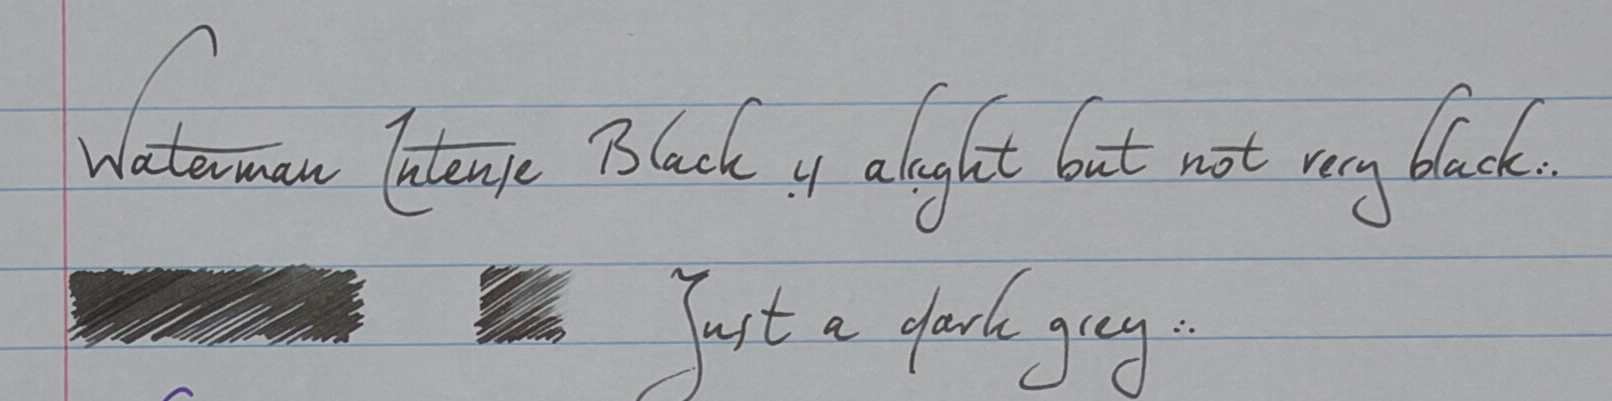 Waterman Intense Black is alright but not very black...
Just a dark grey...